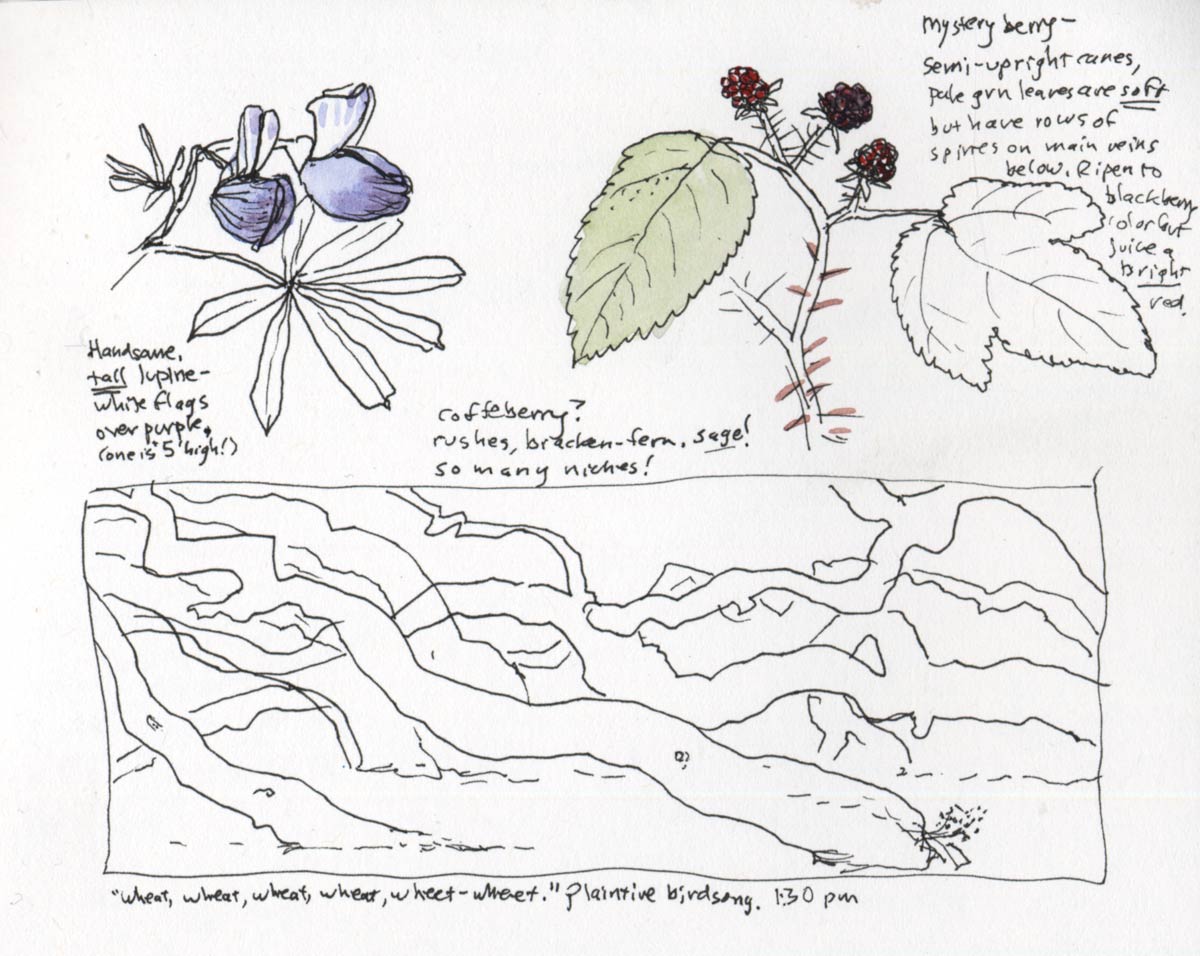 mystery berry-
semi-upright canes,
pale grn leaves are soft
but have rows of
spines on main veins
below. Ripen to
blackberry
color but
juice a
bright
red.
Handsome,
tall lupine-
white flags
over purple,
(one is 5' high!)
coffeberry?
rushes, bracken-fern. sage!
so many niches!
"wheat, wheat, wheat, wheat, wheet-wheet." Plaintive birdsong. 1:30 pm